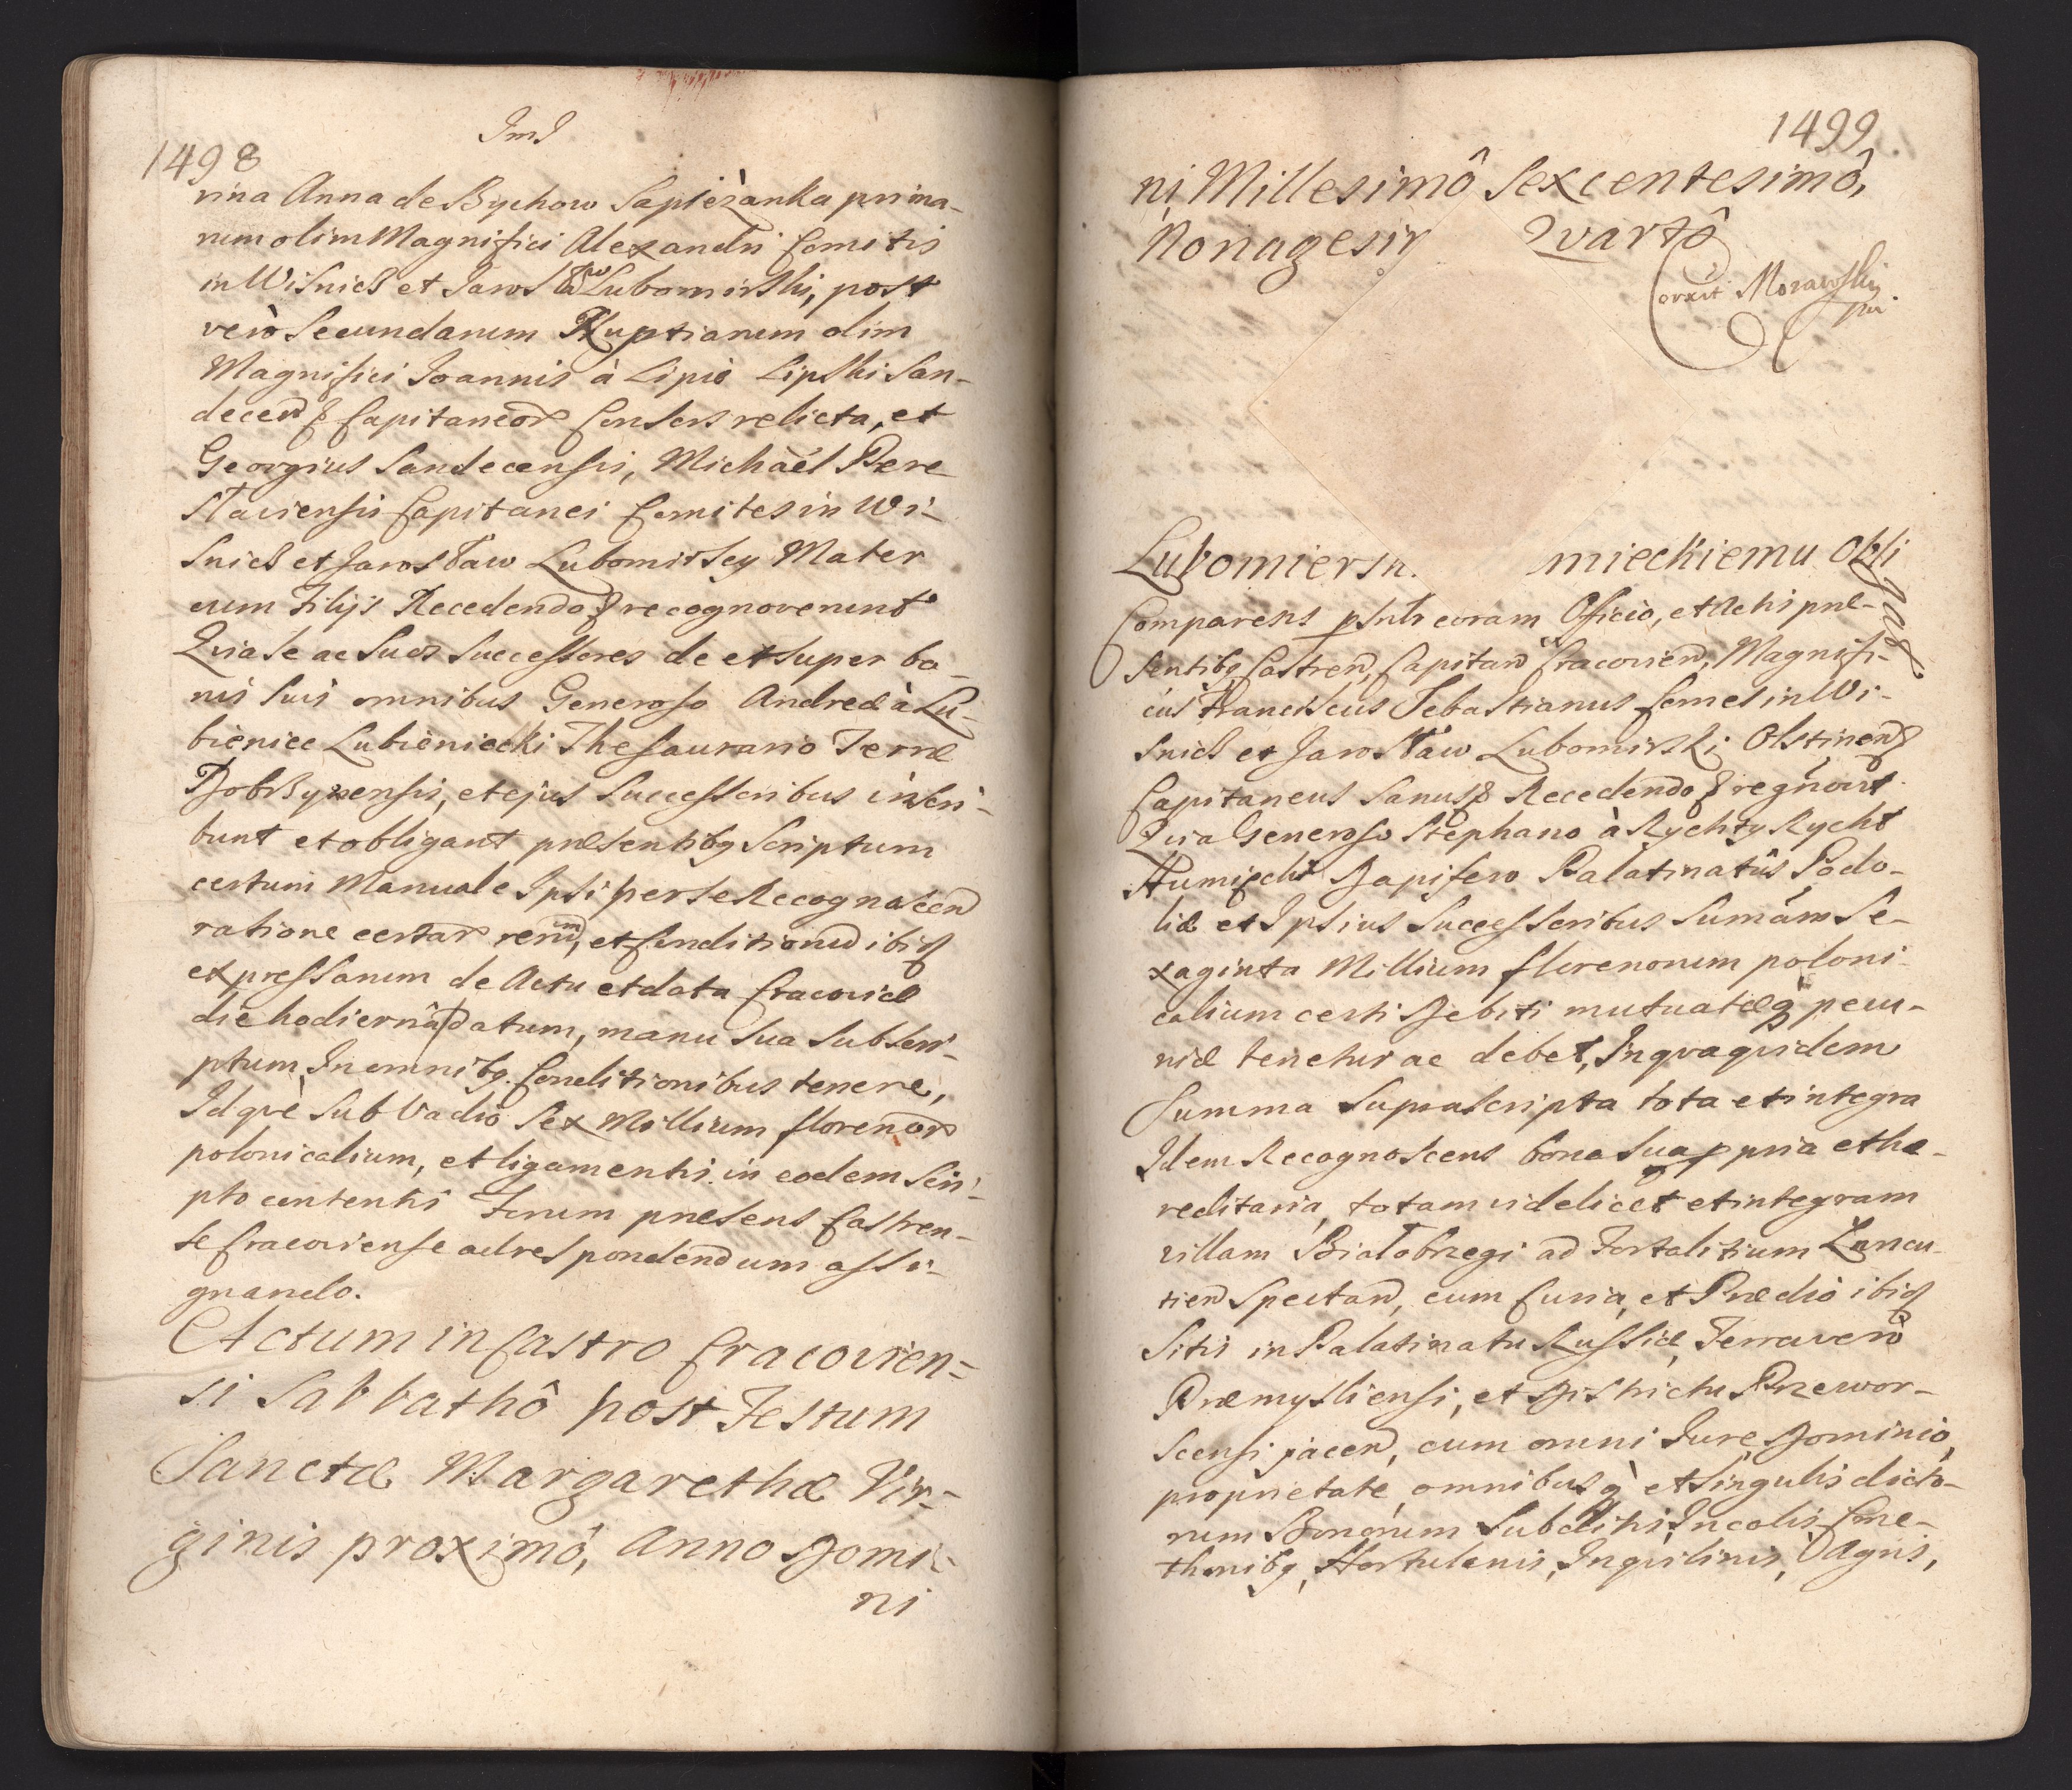 1498
rina Anna de Bychow Sapieżanka prima-
rum olim Magnifici Alexandri Comitis
in Wisnicz et Jarosław Lubomirski, post
verò Secundarum Nuptiarum olim
Magnifici Joannis à Lipie Lipski San-
decen & Capitaneor Consors relicta, et
Georgius Sandecensis, Michaël Pere-
slaviensis Capitanei Comites in Wi-
snicz et Jarosław Lubomirscy Mater
cum Filijs Recedendo & recognoverunt
Quia se ac Suos Successores de et super bo-
nis suis omnibus Generoso Andreæ à Lu-
bieniec Lubieniecki Thesaurario Terræ
Dobrzynensis, et ejus Successoribus inscri-
bunt et obligant præsentibq Scriptum
certum Manuale Ipsi per se Recognoscen
ratione certar rerum, et Conditionu ibiq
expressarum de Actu et data Cracoviæ
die hodiernâ datum, manu sua Subscri-
ptum In omnibq. Conditionibus tenere,
Idquè sub Vadio Sex Millium florenor
polonicalium, et ligamentis in eodem Scri-
pto contentis Forum præsens Castren-
se Cracoviense ad respondendum assi-
gnando.
Actum in Castro Cracovien=
si Sabbathô post Festum
Sanctæ Margarethæ Vir=
ginis proximô, Anno Domi=
ni
1499
ni Millesimô Sexcentesimô,
Nonagesi Quartô
Corrxit Morawski
mp
Lubomiersk. mieckiemu Obli
gat
Comparens psntr coram Officio, et Actis præ-
sentibq Castren, Capitan Cracovien, Magnifi-
cus Franciscus Sebastianus Comes in Wi-
snicz et Jarosław Lubomirski Olstinen &
Capitaneus Sanus & Recedendo & regnovit
Quia Generoso Stephano à Rychty Rycht
Humiecki Dapifero Palatinatûs Podo-
liæ et Ipsius Successoribus Sumam Se-
xaginta Millium florenorum poloni-
calium certi Debiti mutuatæq pecu-
niæ tenetur ac debet, In qva qvidem
Summa Suprascripta tota et integra
Idem Recognoscens bona sua ppria et hæ-
reditaria, totam videlicet et integram
villam Białobrzegi ad Fortalitium Lancu-
tien Spectan, cum Curia, et Prædio ibiq
Sitis in Palatinatu Russiæ, Terra verò
Præmysliensi, et Districtu Przewor-
scensi jacen, cum omni Jure Dominio,
proprietate, omnibusq et singulis dicto-
rum Bonorum Subditis, Incolis, Cme-
thonibq, Hortulanis, Inqvilinis, Agris,